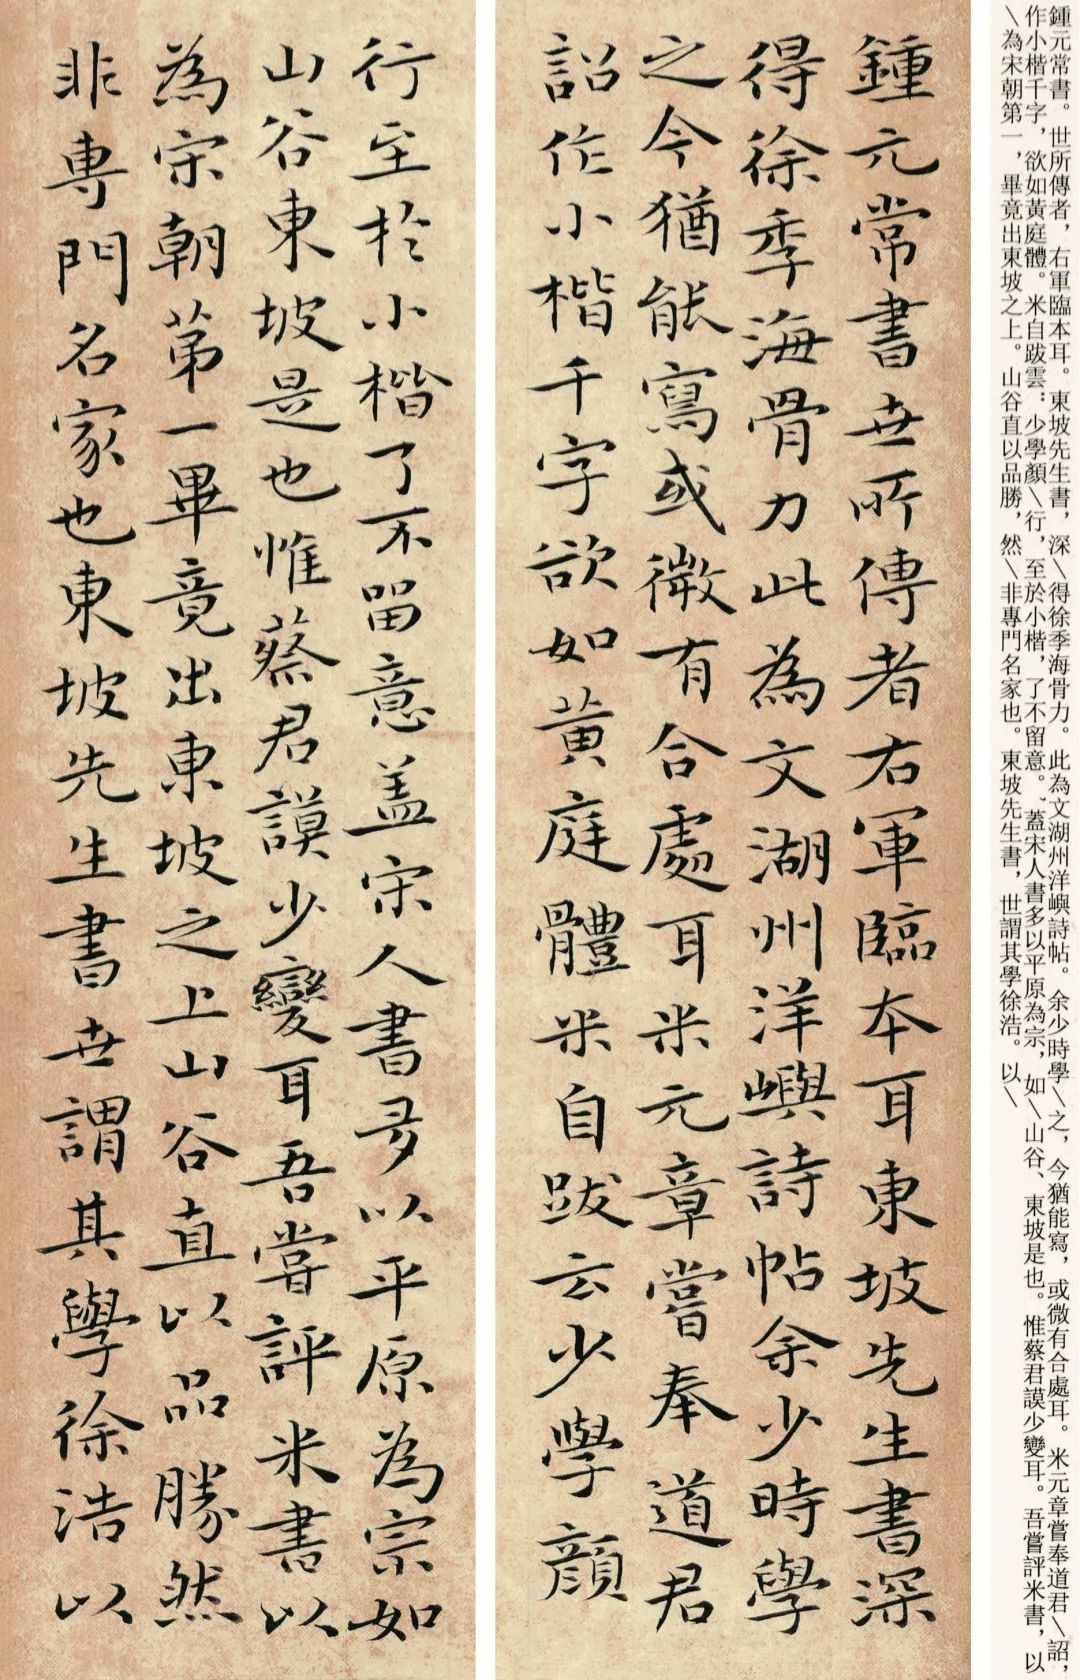 鍾元常書世所傳者右軍臨本耳東坡先生書深
得徐季海骨力此為文湖州洋嶼詩帖余少時學
之今猶能寫或微有合處耳米元章嘗奉道君
詔作小楷千字欲如黃庭體米自跋云少學顏
行至於小楷了不留意盖宋人書多以平原為宗如
山谷東坡是也惟蔡君謨少變耳吾嘗評米書以
為宋朝第一畢竟出東坡之上山谷直以品勝然
非專門名家也東坡先生書世謂其學徐浩以
鍾元常書。世所傳者，右軍臨本耳。東坡先生書，深\得徐季海骨力。此為文湖州洋嶼詩帖。余少時學\之，今猶能寫，或微有合處耳。米元章嘗奉道君\詔，
作小楷千字，欲如黃庭體。米自跋雲：少學顏\行，至於小楷，了不留意。、蓋宋人書多以平原為宗，如\山谷、東坡是也。惟蔡君謨少變耳。吾嘗評米書，以
\為宋朝第一，畢竟出東坡之上。山谷直以品勝，然\非專門名家也。東坡先生書，世謂其學徐浩。以\